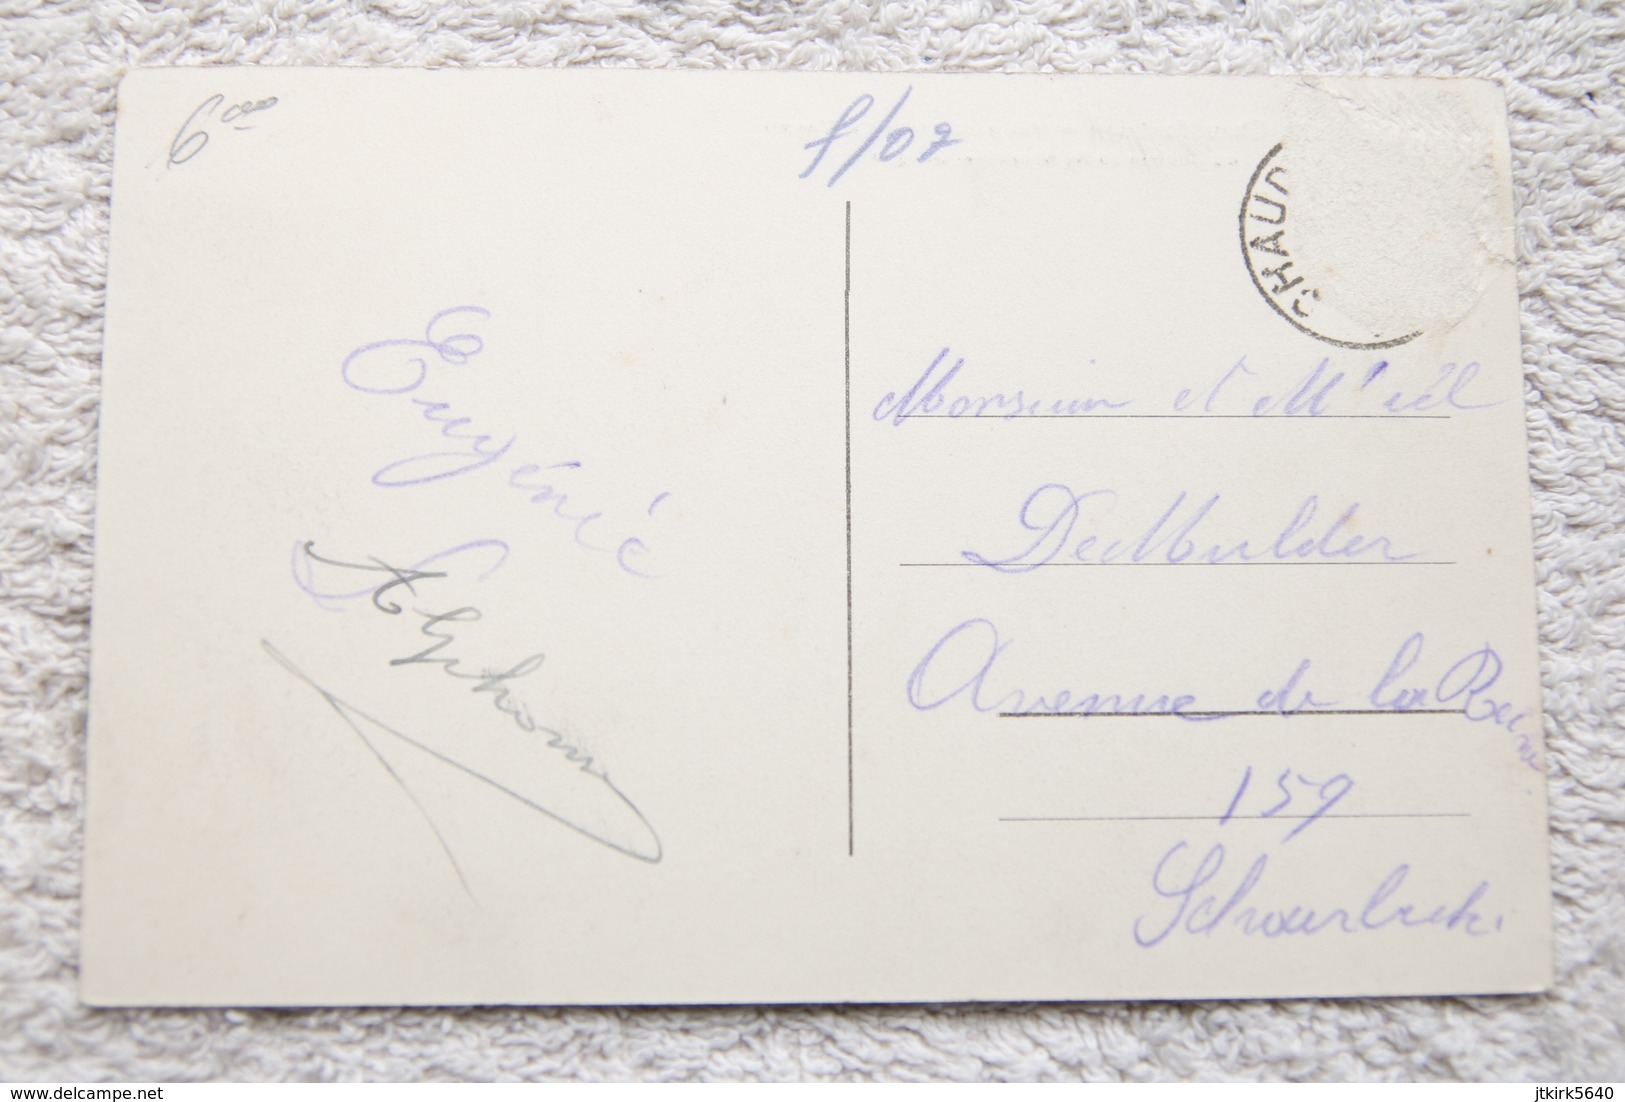 6 ooo
f/02
CHAUS
Eugénie
Alphonse
Monsieur et M'elle
DeMulder
Avenue de la Reine
159
Schaerbeek.
delcampe.net
jtkirk5640